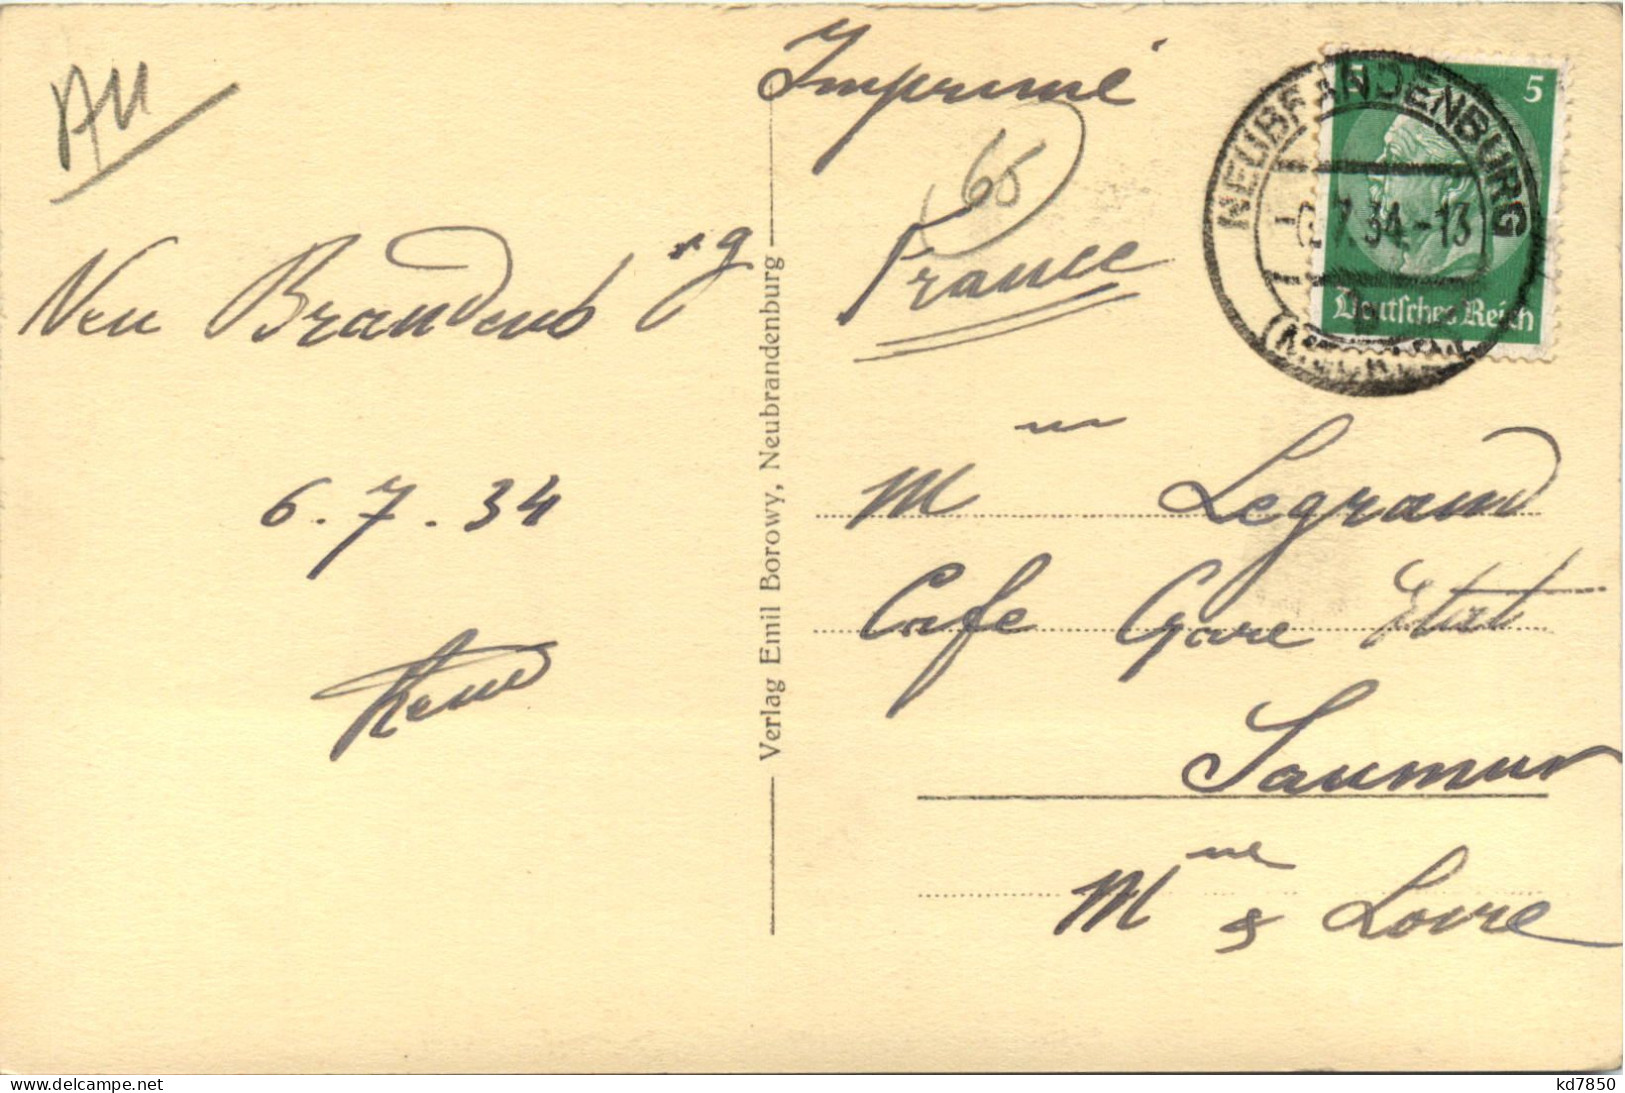 Imprimé
AU
65
5
NEUBRANDENBURG
6.7.34.-13
b
(MECKLB.)
Deutsches Reich
France
Neu Brandenb rg
M Legrand
6.7.34
Cafe Gare Etat
Saumur
Mne & Loire
Verlag Emil Borowy, Neubrandenburg
delcampe.net
kd7850